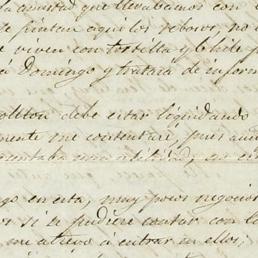 la amistad que llevabamos con
se pintan aqui los rebozos, no
e viven con tortilla y chile p
á Domingo y tratará de inform
debe estar liquidando
mente me contentaré, pues aun
mi
go en esta, muy pocos negocios
si se pudiere contar con la
me atrevo á entrar en ellos;